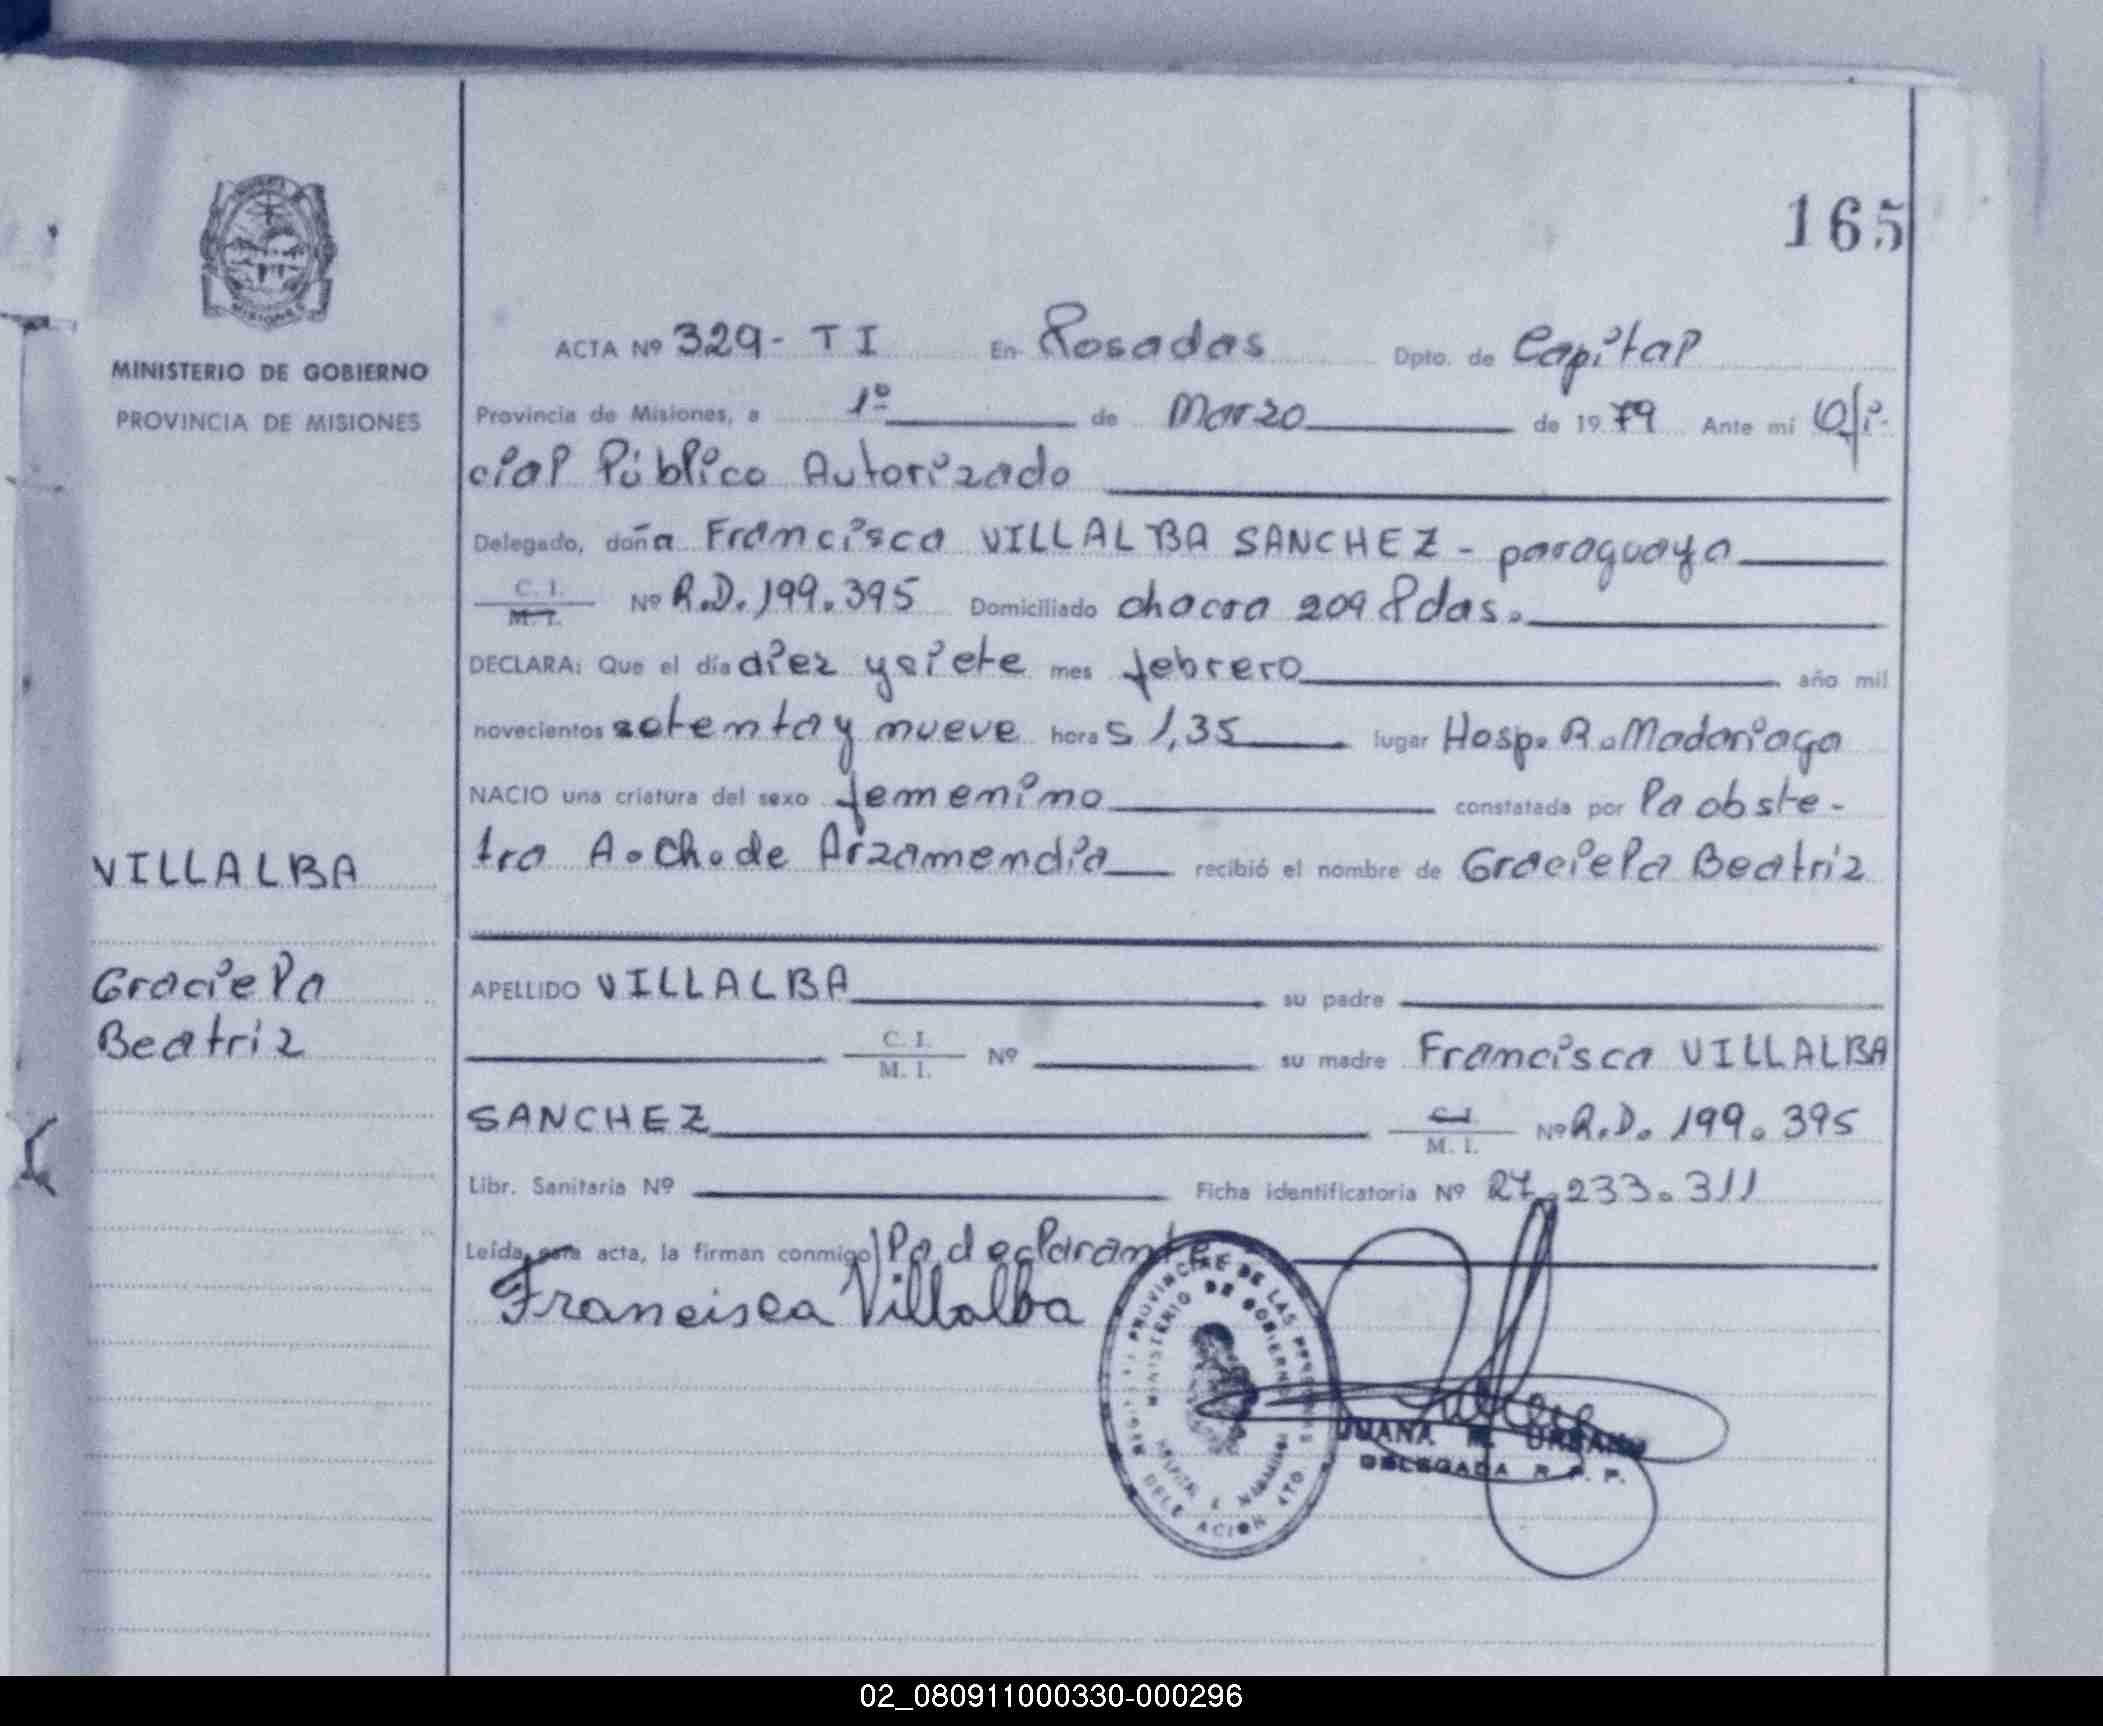 165
MINISTERIO DE GOBIERNO
PROVINCIA DE MISIONES
ACTA Nº 329- T I En Posadas Dpto. de Capital
Provincia de Misiones, a 1º de Marzo de 1979 Ante mi Ofi-
cial Público Autorizado
Delegado, doña Francisca VILLALBA SANCHEZ - paraguaya
C. I.
M. I. Nº R.D. 199.395 Domiciliado chacra 209 Pdas.
DECLARA: Que el día diez y siete mes febrero año mil
novecientos setenta y nueve horas 1,35 lugar Hosp. R. Madariaga
NACIO una criatura del sexo femenino constatada por la obste-
tra A. Ch. de Arzamendia recibió el nombre de Graciela Beatriz
VILLALBA
Graciela
Beatriz
APELLIDO VILLALBA su padre
C. I.
M. I. Nº su madre Francisca VILLALBA
SANCHEZ C. I.
M. I. Nº R.D. 199.395
Libr. Sanitaria Nº Ficha identificatoria Nº 27.233.311
Leída esta acta, la firman conmigo la declarante
Francisca Villalba
PROVINCIAL DE LAS PERSONAS
MINISTERIO DE GOBIERNO
JUANA URBANO
DELEGADA R. P. P.
02_080911000330-000296